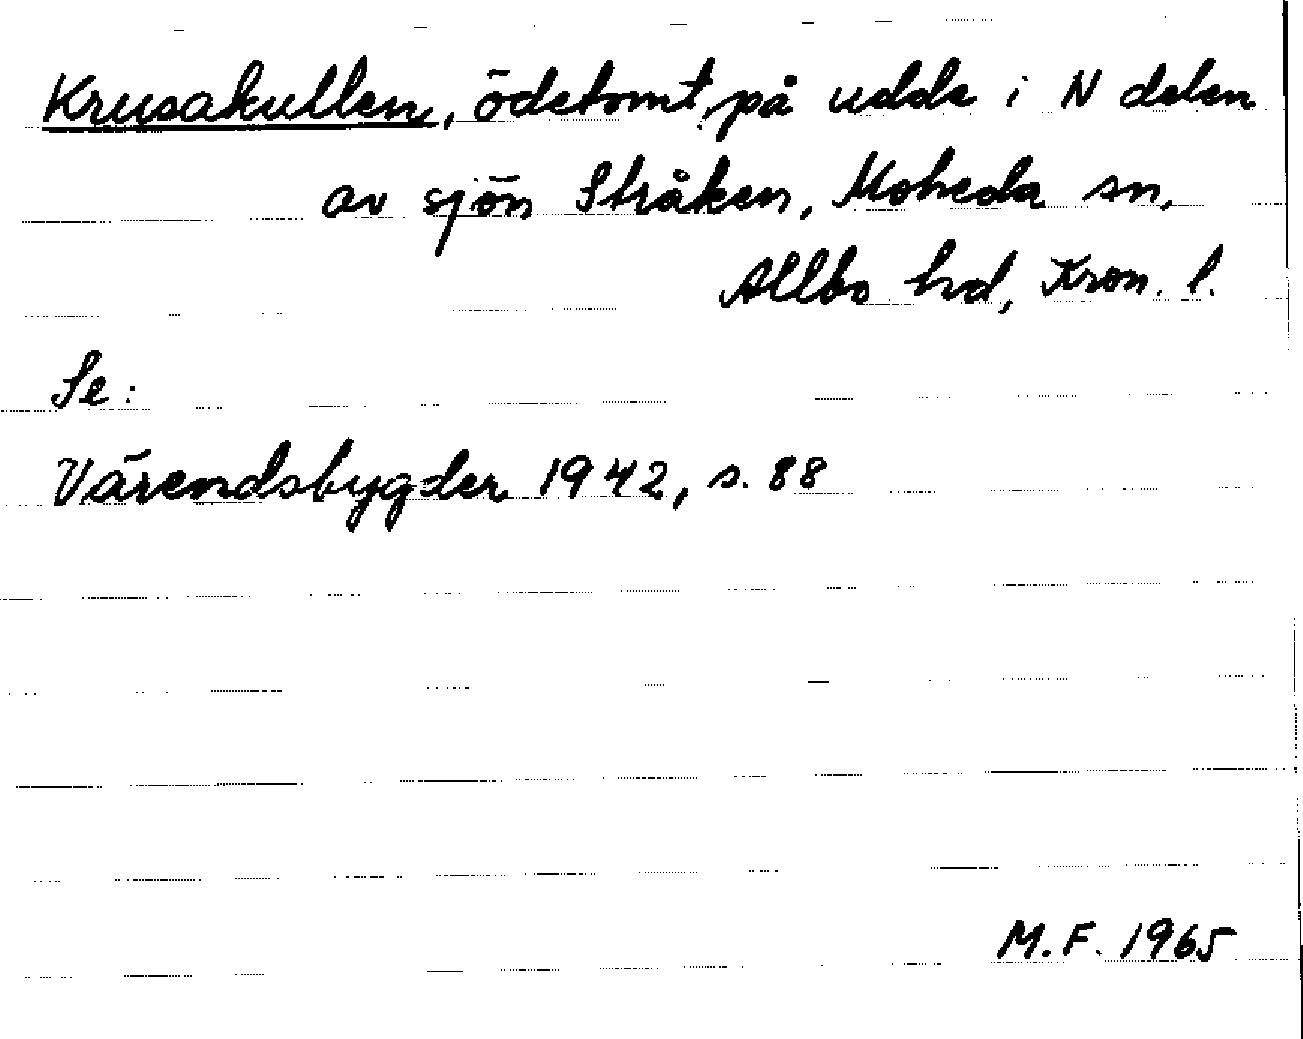 Krusakullen, ödetomt på udde i N delen
av sjön Stråken, Moheda sn,
Allbo hd, Kron. l.
Se:
Värendsbygder 1942, s. 88
M.F. 1965